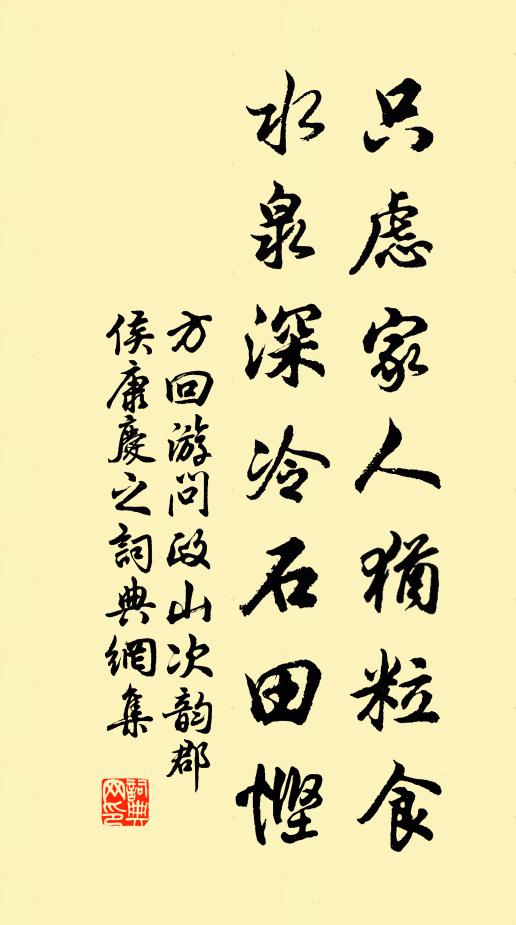 只慮家人猶粒食
水泉深冷石田慳
方回游問政山次韵郡
侯康慶之詞典網集
詞典
网印